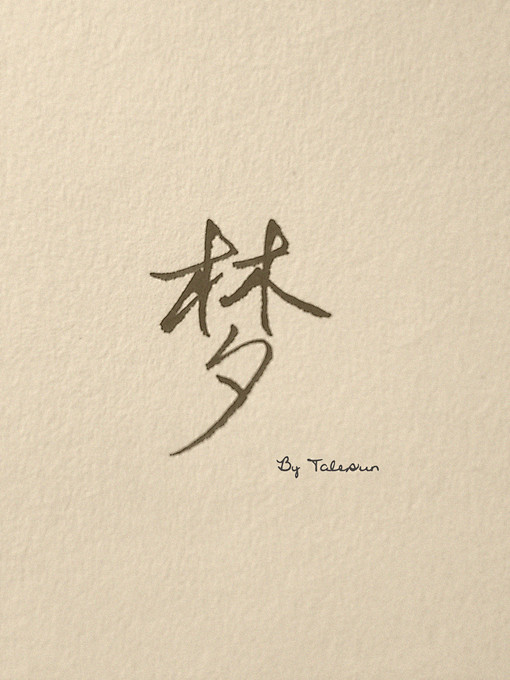 梦
By Talesun